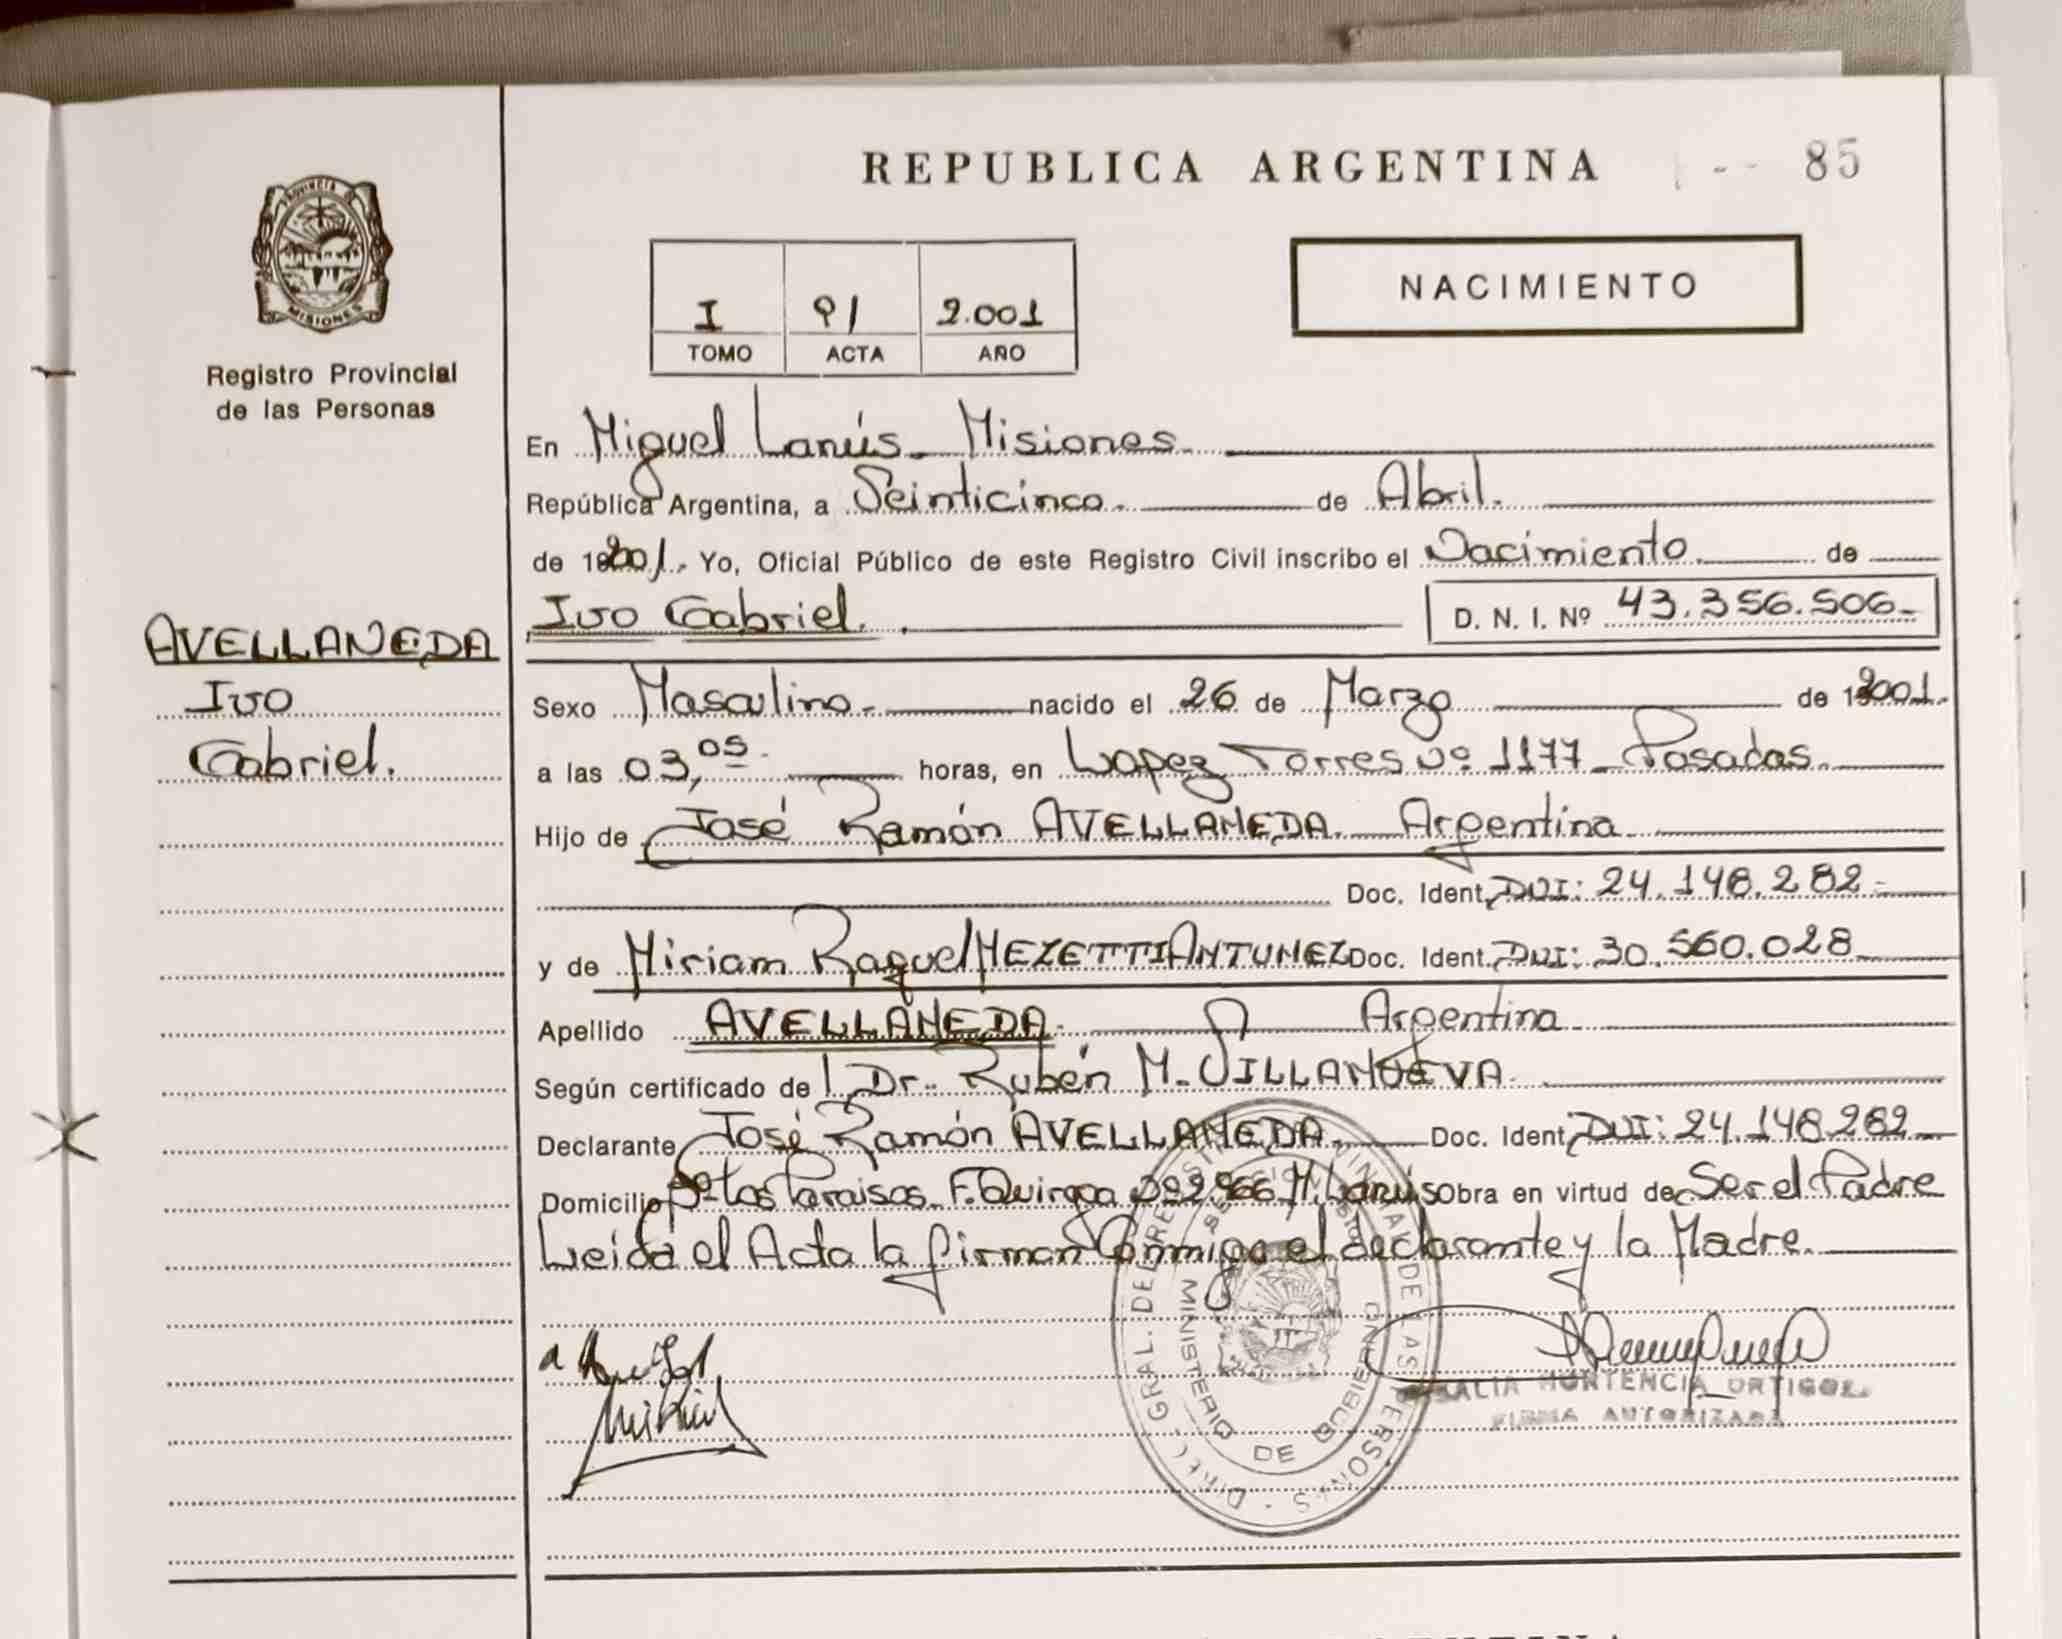 REPUBLICA ARGENTINA
85
PROVINCIA DE
MISIONES
Registro Provincial
de las Personas
I 91 2.001
TOMO ACTA AÑO
NACIMIENTO
En Miguel Lanús - Misiones
República Argentina, a Veinticinco. de Abril.
de 2001. Yo, Oficial Público de este Registro Civil inscribo el Nacimiento. de
Ivo Gabriel. D. N. I. Nº 43.356.506.-
AVELLANEDA
Ivo
Gabriel.
Sexo Masculino.- nacido el 26 de Marzo de 2001.
a las 03,05 horas, en Lopez Torres Nº 1177 - Posadas.
Hijo de José Ramón AVELLANEDA. Argentina
Doc. Ident. DNI: 24.148.282.-
y de Miriam Raquel MEZETTI ANTUNEZ Doc. Ident. DNI: 30.560.028
Apellido AVELLANEDA. Argentina
Según certificado de l Dr. Rubén M. VILLANUEVA.
Declarante José Ramón AVELLANEDA. Doc. Ident. DNI: 24.148.282
Domicilio Bº Los Paraisos. F. Quiroga 966 M. Lanús Obra en virtud de Ser el Padre
Leida el Acta la firman Conmigo el declarante y la Madre.
MINISTERIO DE GOBIERNO
HORTENCIA ORTIGOZA
FIRMA AUTORIZADA